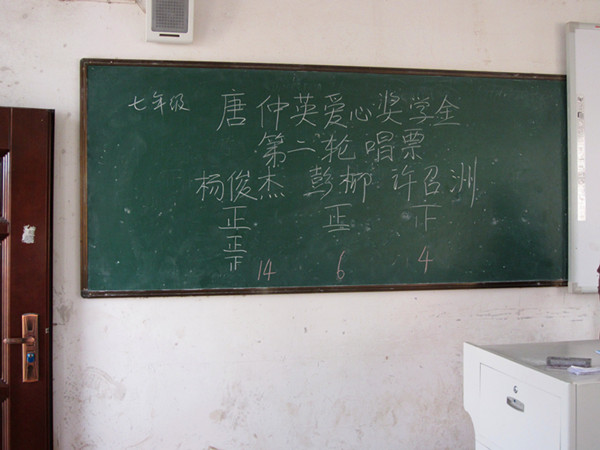 七年级 唐仲英爱心奖学金
第二轮唱票
杨俊杰 彭柳 许召洲
正 正 正
正 一
正
14 6 4